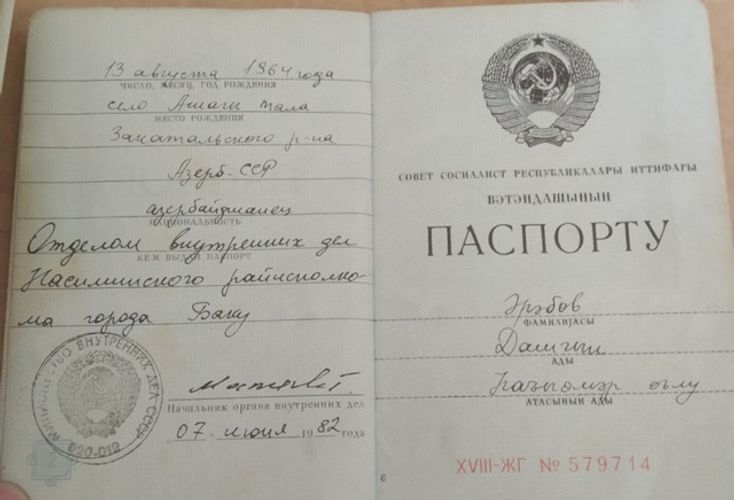 13 августа 1964 года
ЧИСЛО, МЕСЯЦ, ГОД РОЖДЕНИЯ
село Ашаги тала
МЕСТО РОЖДЕНИЯ
Закатальского р-на
Азерб. ССР
азербайджанец
НАЦИОНАЛЬНОСТЬ
Отделом внутренних дел
КЕМ ВЫДАН ПАСПОРТ
Насиминского райисполко-
ма города Баку
МИНИСТЕРСТВО ВНУТРЕННИХ ДЕЛ СССР
620-012
Начальник органа внутренних дел
07 июня 1982 года
СОВЕТ СОСИАЛИСТ РЕСПУБЛИКАЛАРЫ ИТТИФАГЫ
ВӘТӘНДАШЫНЫН
ПАСПОРТУ
Әрәбов
ФАМИЛИЈАСЫ
Дашгын
АДЫ
оғлу
АТАСЫНЫН АДЫ
6
XVIII-ЖГ № 579714